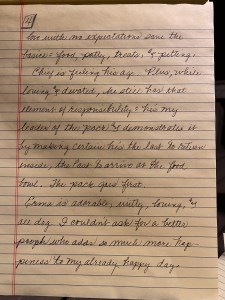 14
love with no expectations save the
basics = food, potty, treats, & petting.
Chug is feeling his age. Plus, while
loving & devoted, he still has that
element of responsibility = he's my
leader of the pack & demonstrates it
by making certain he's the last to return
inside, the last to arrive at the food
bowl. The pack goes first.
Erma is adorable, witty, loving, &
all dog. I couldn't ask for a better
pooch who adds so much more hap-
piness to my already happy day.